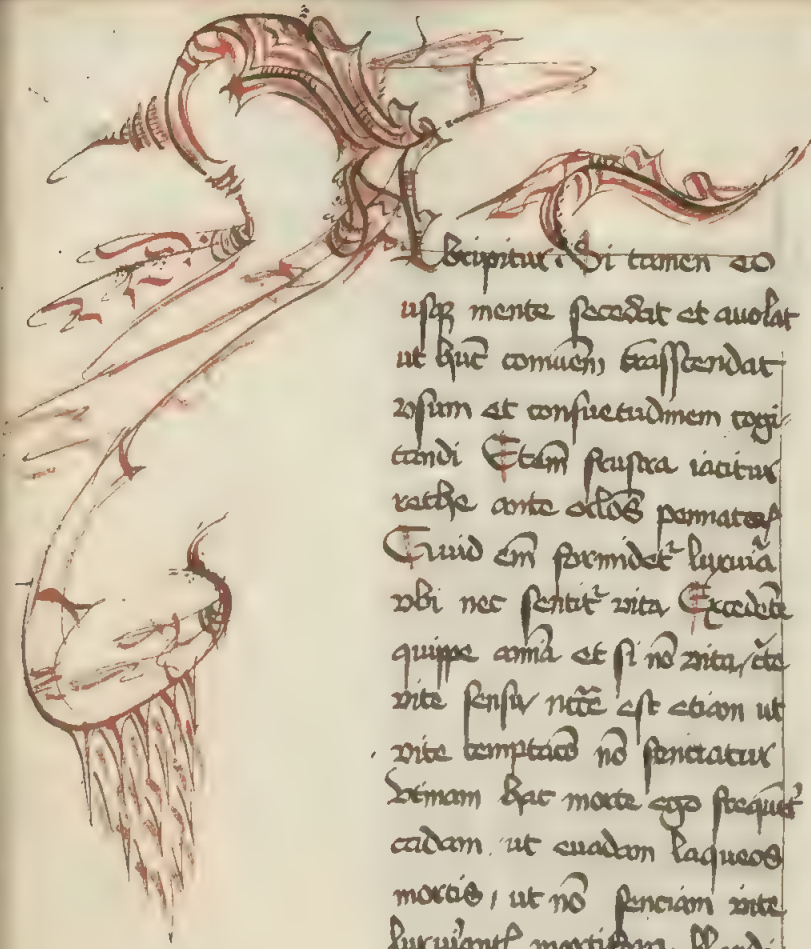 Abripitur. Si tamen eo
usq̨ mente secedat et auolat
ut hūc comuēm trāsscendat
vsum et consuetudinem cogi-
tandi Eteīm frustra iacitur
rethe ante oclōs pennatorꝝ
Quid em̄ formidetᷣ luxuria
vbi nec sentitᷣ vita Excedēte
quippe anīa et si nō vita, c̄te
vite sensu, necc̄e est etiam ut
vite temptacō nō senciatur
Vtinam hac morte ego frequētᷣ
cadam, ut euadam laqueos
mortis, ut nō senciam vite
luxuriantꝭ mortifera blandi